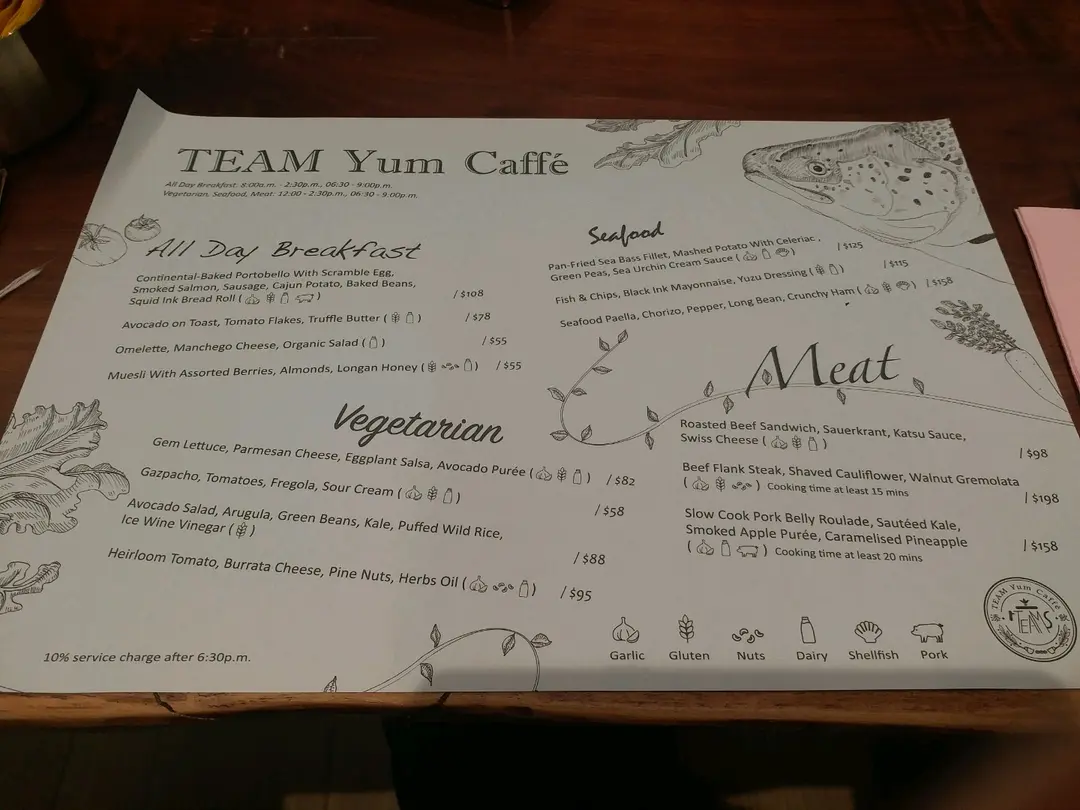 TEAM Yum Caffé
All Day Breakfast: 8:00a.m. - 2:30p.m., 06:30 - 9:00p.m.
Vegetarian, Seafood, Meat: 12:00 - 2:30p.m., 06:30 - 9:00p.m.
All Day Breakfast
Continental-Baked Portobello With Scramble Egg,
Smoked Salmon, Sausage, Cajun Potato, Baked Beans,
Squid Ink Bread Roll ( ) / $108
Avocado on Toast, Tomato Flakes, Truffle Butter ( ) / $78
Omelette, Manchego Cheese, Organic Salad ( ) / $55
Muesli With Assorted Berries, Almonds, Longan Honey ( ) / $55
Vegetarian
Gem Lettuce, Parmesan Cheese, Eggplant Salsa, Avocado Purée ( ) / $82
Gazpacho, Tomatoes, Fregola, Sour Cream ( ) / $58
Avocado Salad, Arugula, Green Beans, Kale, Puffed Wild Rice,
Ice Wine Vinegar ( ) / $88
Heirloom Tomato, Burrata Cheese, Pine Nuts, Herbs Oil ( ) / $95
10% service charge after 6:30p.m.
Seafood
Pan-Fried Sea Bass Fillet, Mashed Potato With Celeriac ,
Green Peas, Sea Urchin Cream Sauce ( ) / $125
Fish & Chips, Black Ink Mayonnaise, Yuzu Dressing ( ) / $115
Seafood Paella, Chorizo, Pepper, Long Bean, Crunchy Ham ( ) / $158
Meat
Roasted Beef Sandwich, Sauerkrant, Katsu Sauce,
Swiss Cheese ( ) / $98
Beef Flank Steak, Shaved Cauliflower, Walnut Gremolata
( ) Cooking time at least 15 mins / $198
Slow Cook Pork Belly Roulade, Sautéed Kale,
Smoked Apple Purée, Caramelised Pineapple / $158
( ) Cooking time at least 20 mins
Garlic Gluten Nuts Dairy Shellfish Pork
TEAM Yum Caffé
TEAMS